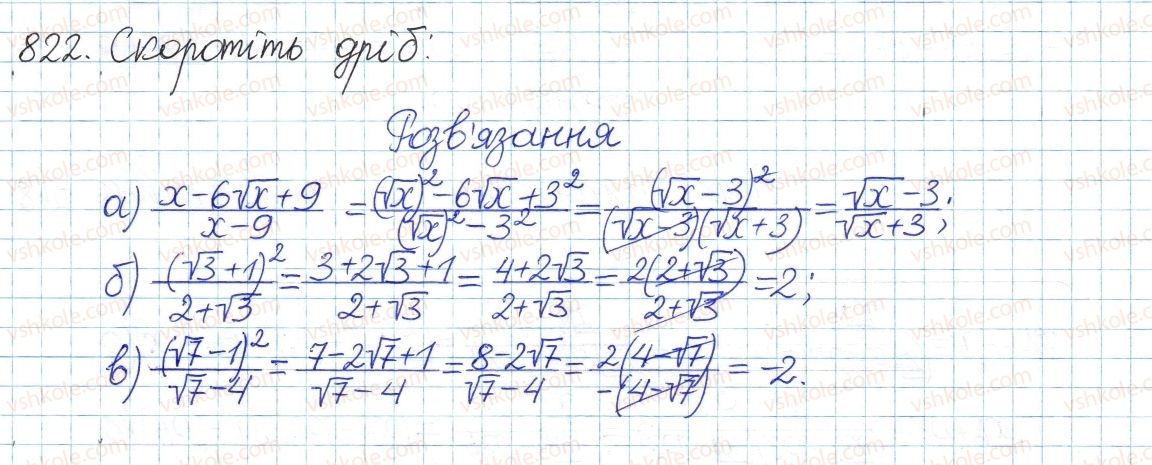 822. Скоротіть дріб:
Розв'язання
а) (x-6√x+9)/(x-9) = ((√x)²-6√x+3²)/((√x)²-3²) = (√x-3)²/((√x-3)(√x+3)) = (√x-3)/(√x+3);
б) (√3+1)²/(2+√3) = (3+2√3+1)/(2+√3) = (4+2√3)/(2+√3) = 2(2+√3)/(2+√3) = 2;
в) (√7-1)²/(√7-4) = (7-2√7+1)/(√7-4) = (8-2√7)/(√7-4) = 2(4-√7)/(-(4-√7)) = -2.